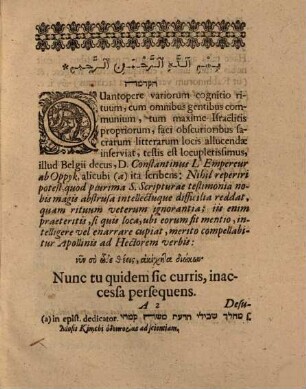 بسم الله الرحمن الرحيم
QUantopere variorum cognitio ri-
tuum, cum omnibus gentibus com-
munium, tum maxime Israëlitis
propriorum, faci obscurioribus sa-
crarum litterarum locis allucendæ
inserviat; testis est locupletissimus,
illud Belgii decus, D. Constantinus L' Empereur
ab Oppyk, alicubi (a) ita scribens; Nihil reperiri
potest, quod plurima S. Scripturæ testimonia no-
bis magis abstrusa intellectuque difficilia reddat,
quam rituum veterum ignorantia; iis enim
præteritis, si quis loca, ubi eorum fit mentio, in-
telligere vel enarrare cupiat, merito compellabi-
tur Apollinis ad Hectorem verbis:
Nunc tu quidem sic curris, inac-
cessa persequens.
A 2 Desu-
(a) in epist. dedicator. מהלך שבילי הדעת
Mosis Kimchi ὁδοιπορίας ad scientiam,